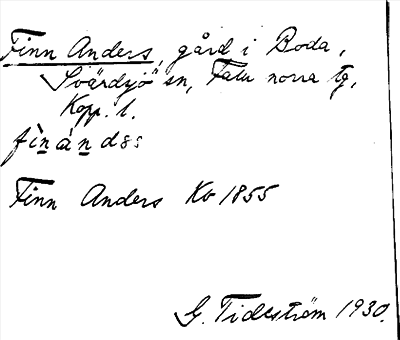 Finn Anders, gård i Boda,
Svärdsjö sn, Falu norra tg,
Kopp. l.
fìnàndss
Finn Anders Kb 1855
G. Tideström 1930.